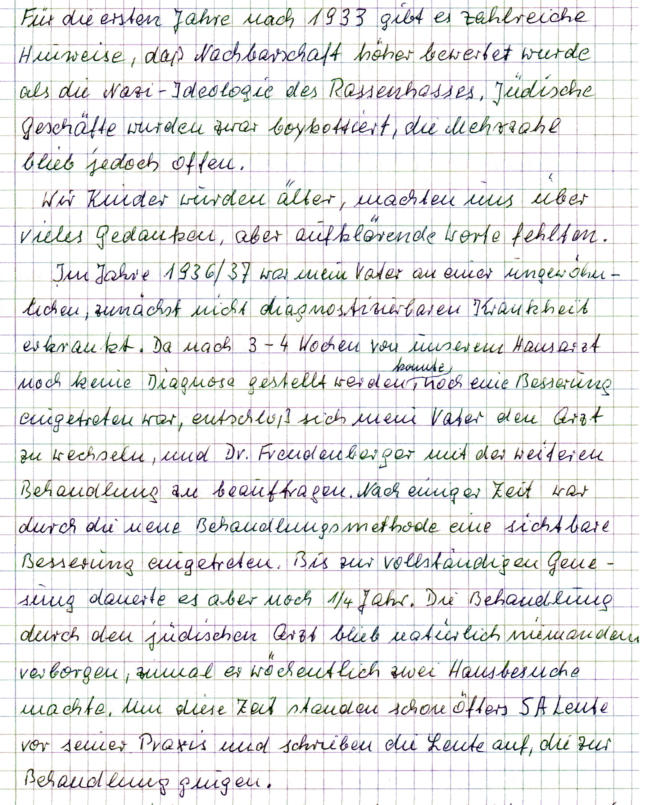 Für die ersten Jahre nach 1933 gibt es zahlreiche
Hinweise, daß Nachbarschaft höher bewertet wurde
als die Nazi-Ideologie des Rassenhasses. Jüdische
Geschäfte wurden zwar boykottiert, die Mehrzahl
blieb jedoch offen.
Wir Kinder wurden älter, machten uns über
vieles Gedanken, aber aufklärende Worte fehlten.
Im Jahre 1936/37 war mein Vater an einer ungewöhn-
lichen, zunächst nicht diagnostizierbaren Krankheit
erkrankt. Da nach 3-4 Wochen von unserem Hausarzt
konnte,
noch keine Diagnose gestellt werden, noch eine Besserung
eingetreten war, entschloß sich mein Vater den Arzt
zu wechseln, und Dr. Freudenberger mit der weiteren
Behandlung zu beauftragen. Nach einiger Zeit war
durch die neue Behandlungsmethode eine sichtbare
Besserung eingetreten. Bis zur vollständigen Gene-
sung dauerte es aber noch 1/4 Jahr. Die Behandlung
durch den jüdischen Arzt blieb natürlich niemandem
verborgen, zumal er wöchentlich zwei Hausbesuche
machte. Um diese Zeit standen schon öfters SA Leute
vor seiner Praxis und schrieben die Leute auf, die zur
Behandlung gingen.